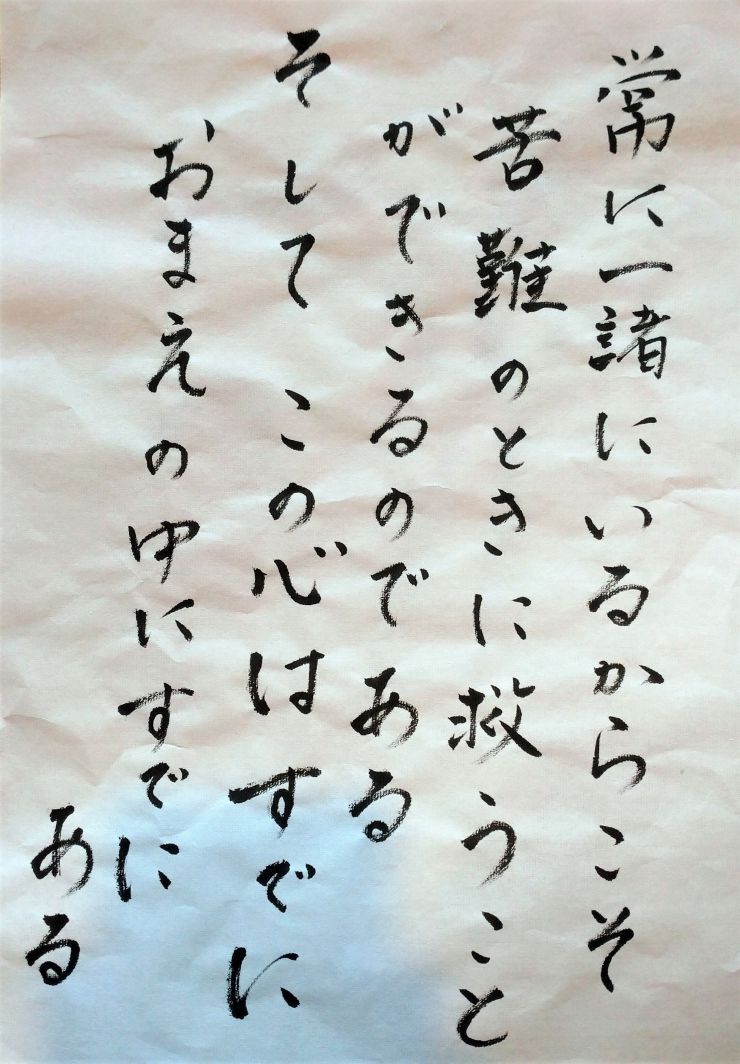 常に一諸にいるからこそ
苦難のときに救うこと
ができるのである
そして この心は すでに
おまえの中にすでに
ある